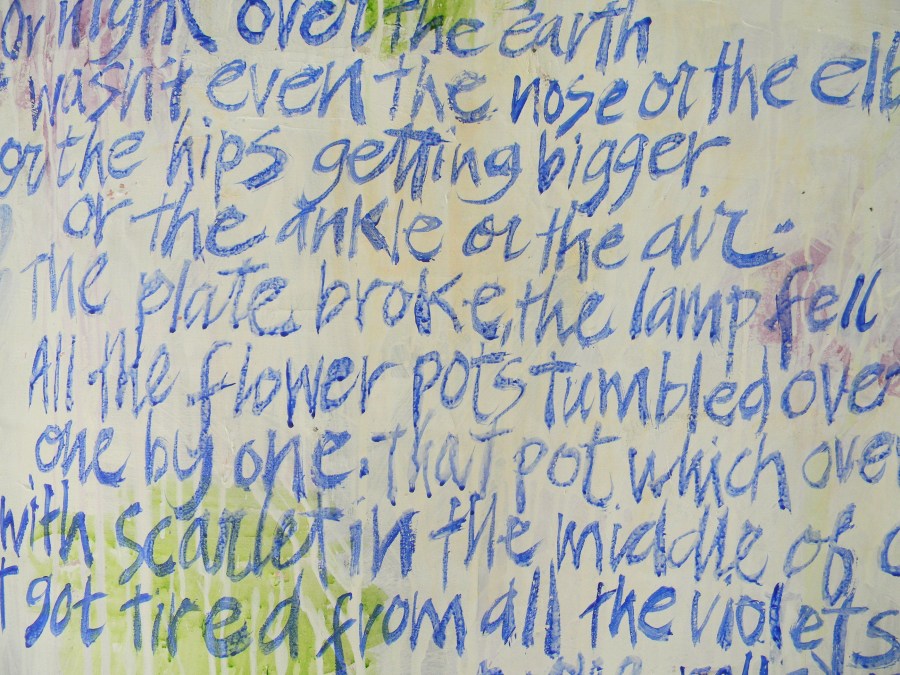 or night over the earth
wasn't even the nose or the elb
or the hips getting bigger
or the ankle or the air.
The plate broke, the lamp fell
All the flower pots tumbled over
one by one. that pot which over
with scarlet in the middle of O
t got tired from all the violets